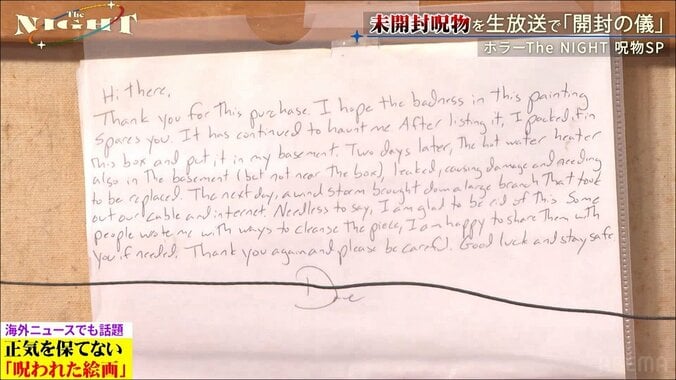 The NIGHT
未開封呪物を生放送で「開封の儀」
ホラーThe NIGHT 呪物SP
Hi there,
Thank you for this purchase. I hope the badness in this painting
spares you. It has continued to haunt me. After listing it, I packed it in
this box and put it in my basement. Two days later, the hot water heater
also in the basement (but not near the box) leaked, causing damage and needing
to be replaced. The next day, a wind storm brought down a large branch that took
out our cable and internet. Needless to say, I am glad to be rid of this. Some
people wrote me with ways to cleanse the piece, I am happy to share them with
you if needed. Thank you again and please be careful. Good luck and stay safe
海外ニュースでも話題
正気を保てない
「呪われた絵画」
ABEMA